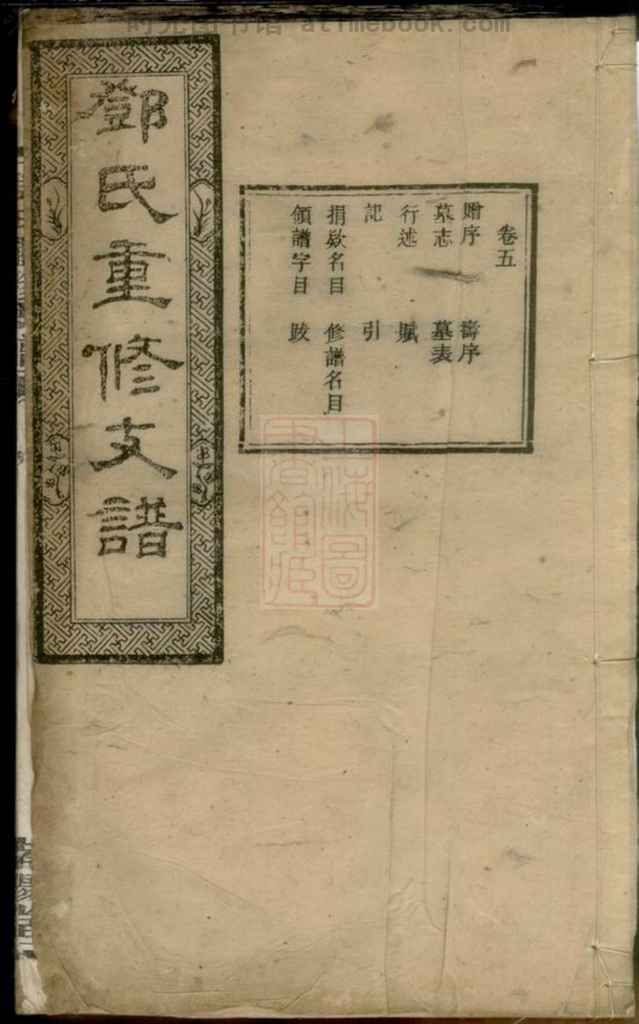 时光图书馆 atimebook.com
鄧氏重修支譜
卷五
贈序 壽序
墓志 墓表
行述 賦
記 引
捐欵名目 修譜名目
領譜字目 跋